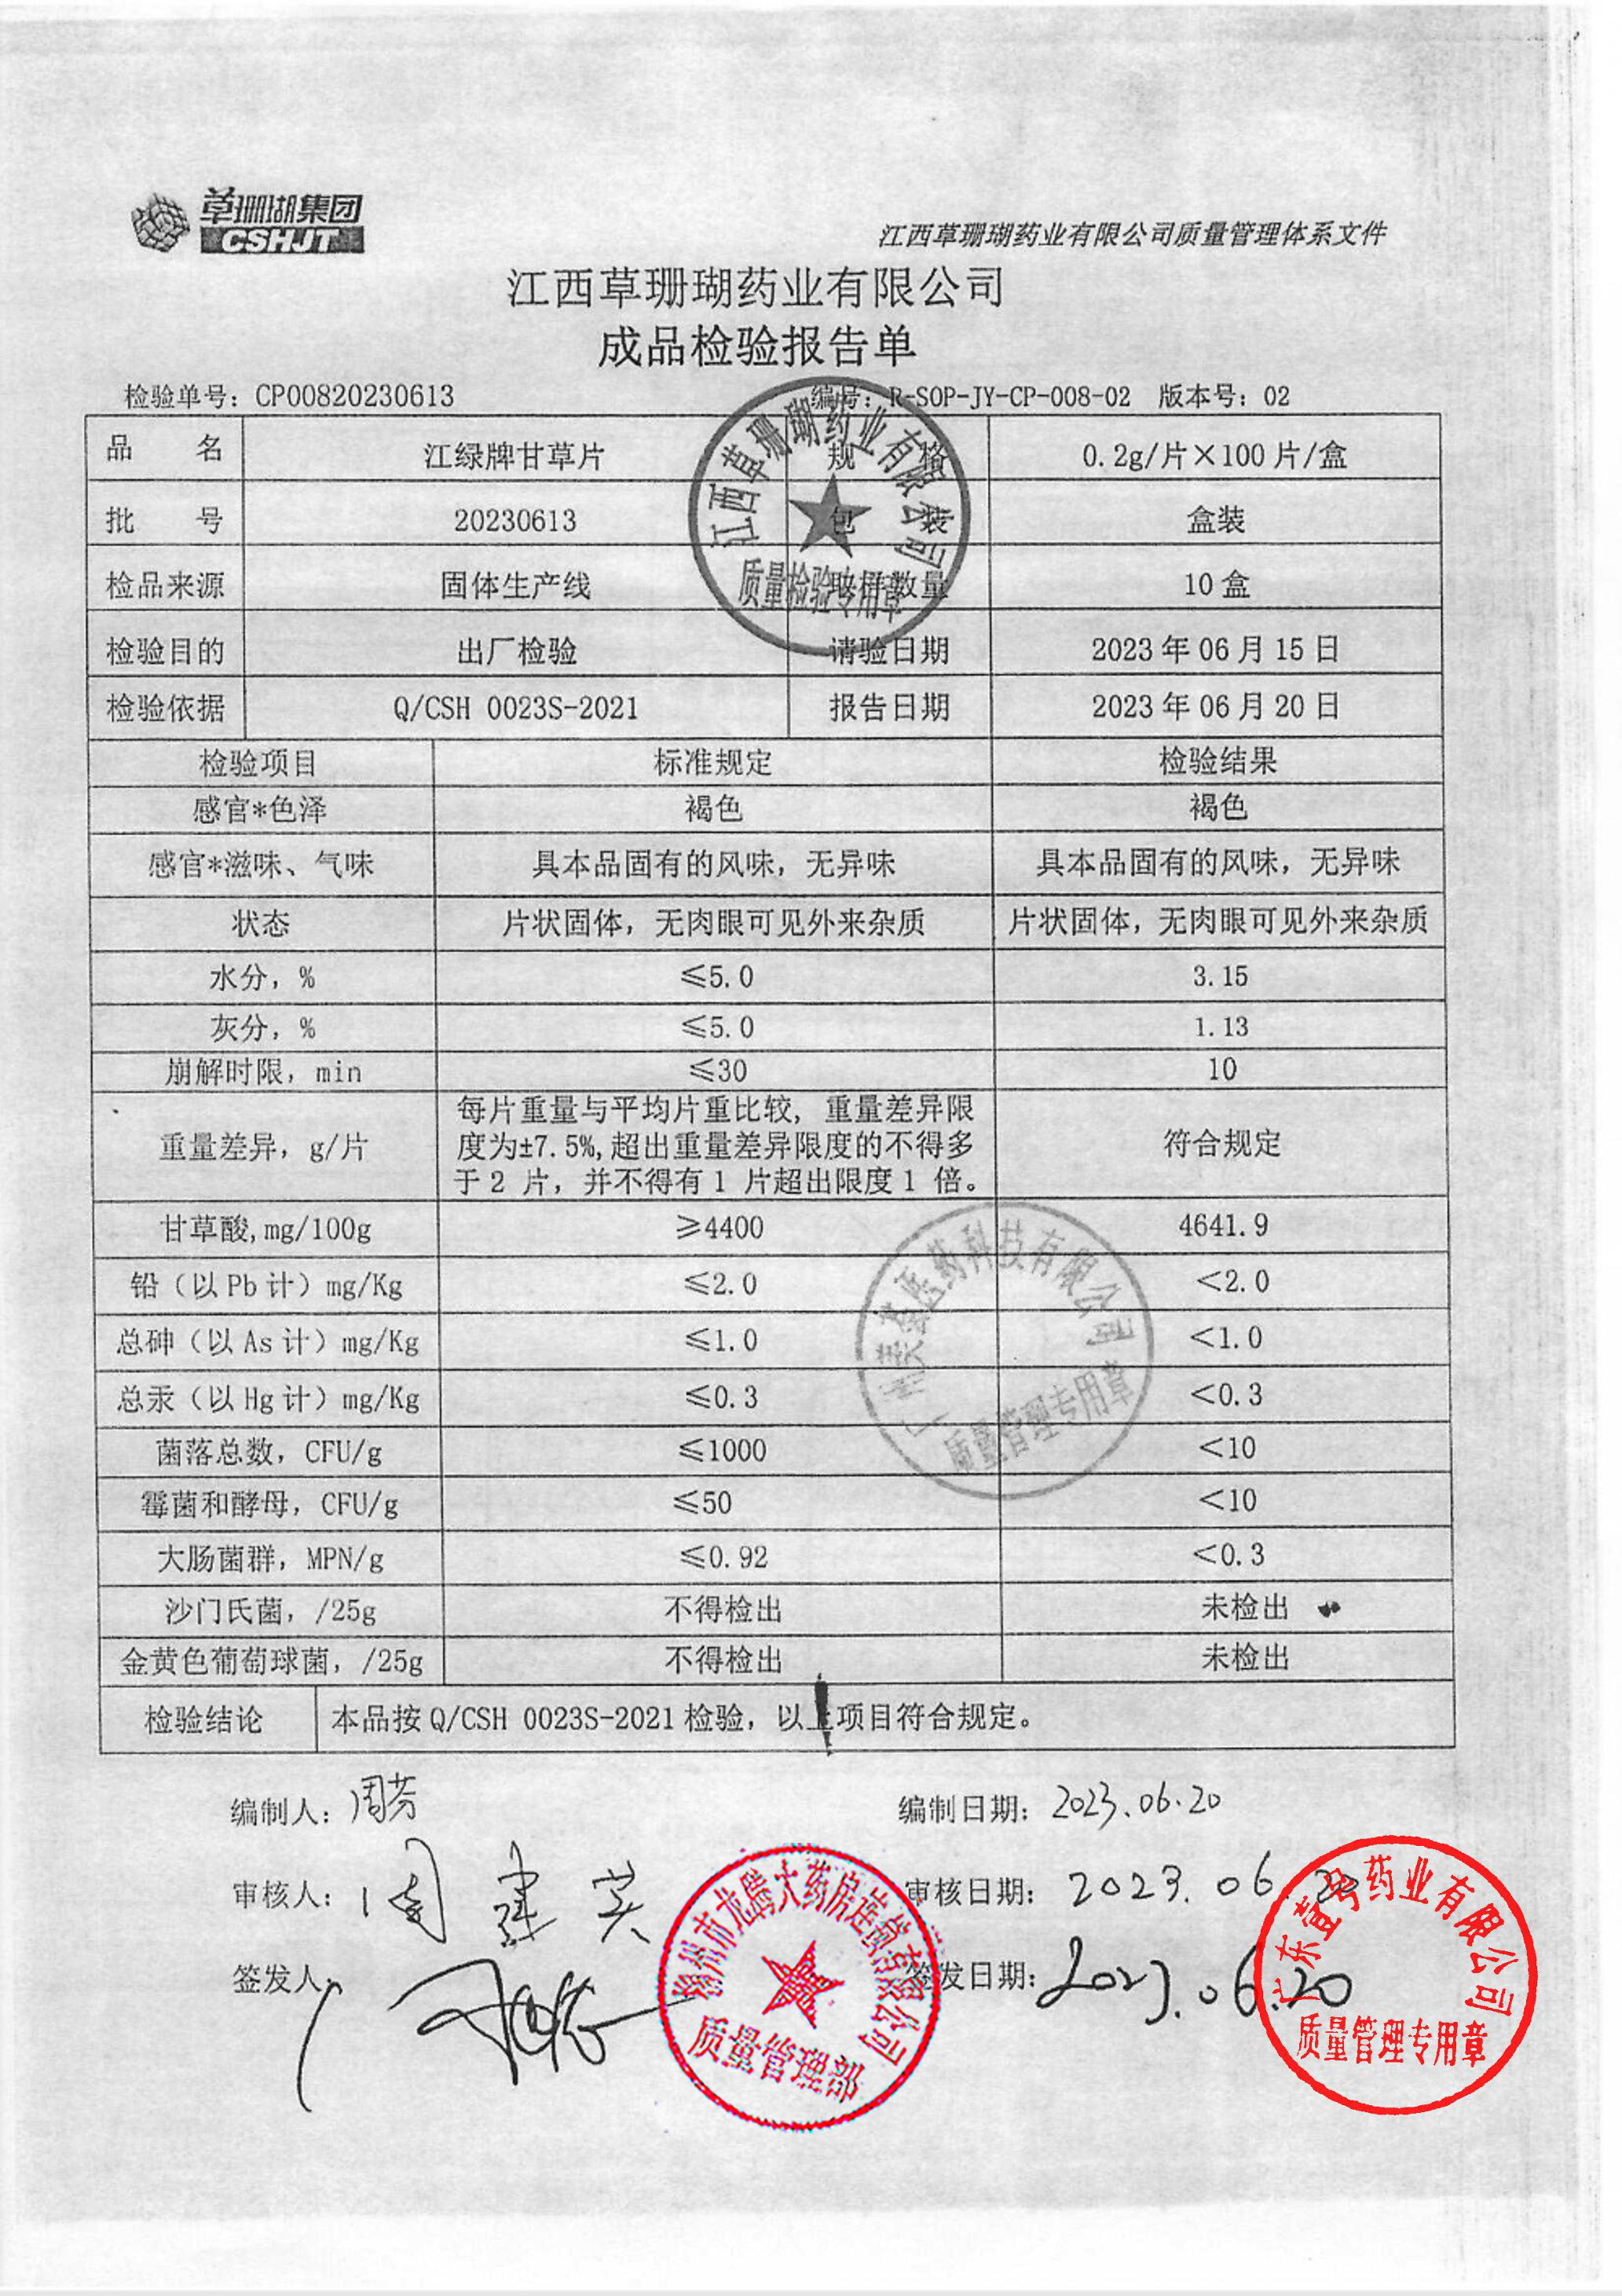 草珊瑚集团
CSHJT
江西草珊瑚药业有限公司质量管理体系文件
江西草珊瑚药业有限公司
成品检验报告单
检验单号：CP00820230613 编号：R-SOP-JY-CP-008-02 版本号：02
品 名 江绿牌甘草片 规 格 0.2g/片×100片/盒
批 号 20230613 包 装 盒装
检品来源 固体生产线 取样数量 10盒
检验目的 出厂检验 请验日期 2023年06月15日
检验依据 Q/CSH 0023S-2021 报告日期 2023年06月20日
江西草珊瑚药业有限公司
质量检验专用章
检验项目 标准规定 检验结果
感官*色泽 褐色 褐色
感官*滋味、气味 具本品固有的风味，无异味 具本品固有的风味，无异味
状态 片状固体，无肉眼可见外来杂质 片状固体，无肉眼可见外来杂质
水分，% ≤5.0 3.15
灰分，% ≤5.0 1.13
崩解时限，min ≤30 10
重量差异，g/片 每片重量与平均片重比较，重量差异限
度为±7.5%,超出重量差异限度的不得多
于2片，并不得有1片超出限度1倍。 符合规定
甘草酸,mg/100g ≥4400 4641.9
铅（以Pb计）mg/Kg ≤2.0 <2.0
总砷（以As计）mg/Kg ≤1.0 <1.0
总汞（以Hg计）mg/Kg ≤0.3 <0.3
菌落总数，CFU/g ≤1000 <10
霉菌和酵母，CFU/g ≤50 <10
大肠菌群，MPN/g ≤0.92 <0.3
沙门氏菌，/25g 不得检出 未检出
金黄色葡萄球菌，/25g 不得检出 未检出
医药科技有限公司
质量管理专用章
检验结论 本品按Q/CSH 0023S-2021检验，以上项目符合规定。
编制人：周芳 编制日期：2023.06.20
审核人： 审核日期：2023.06.20
签发人 签发日期：2023.06.20
潮州市龙腾大药房连锁有限公司
质量管理部
广东壹号药业有限公司
质量管理专用章